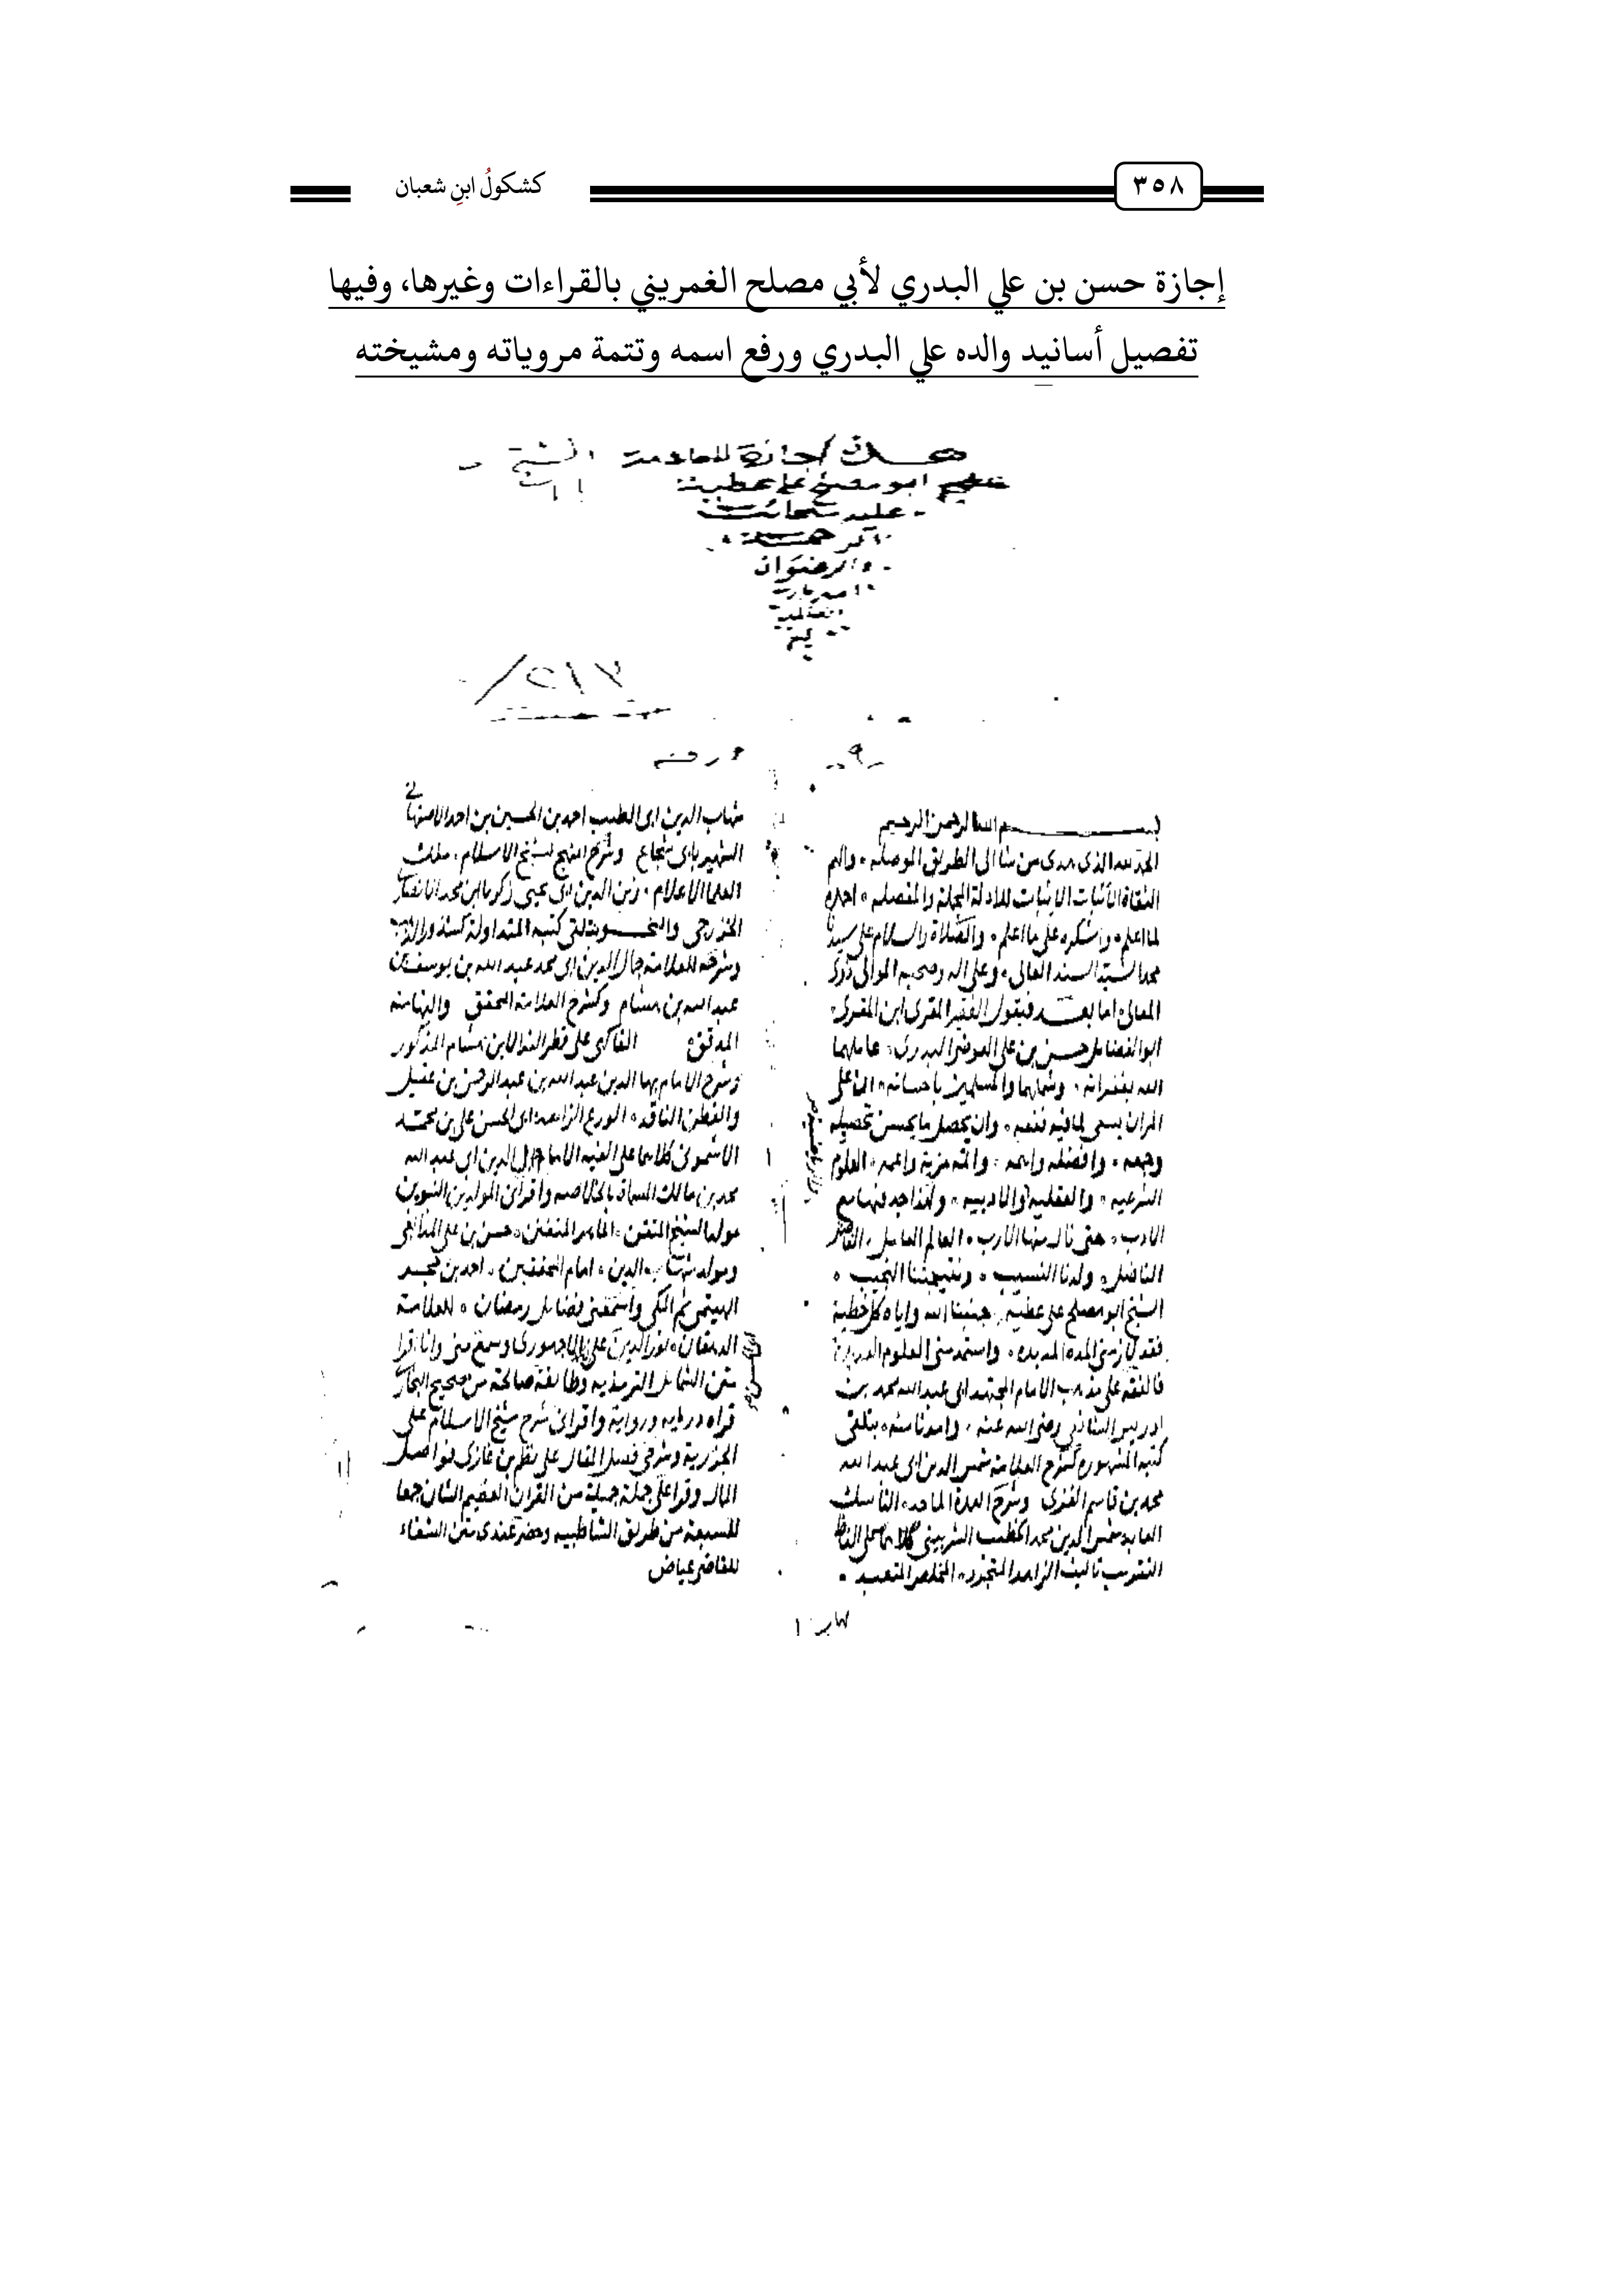 كشكولُ ابنِ شعبان
٣٥٨
إجازة حسن بن علي البدري لأبي مصلح الغمريني بالقراءات وغيرها، وفيها
تفصيل أسانيد والده علي البدري ورفع اسمه وتتمة مروياته ومشيخته
اجازة للعلامة الشيخ
ابو مصلح على عطية
والرضوان
بسم الله الرحمن الرحيم
الحمد لله الذى هدى من شا الى الطريق الموصله والهم
الثقاة الاثبات الاثبات للادلة المجملة والمفصله احمده
لما اعلم واشكره على ما اعلم والصلاة والسلام على سيدنا
محمد السيد السند العالى وعلى اله وصحبه الموالى ذوى
المعالى اما بعد فيقول الفقير المقرى ابن المقرى
ابو الفضايل حسن بن على العوضى البدرى عاملهما
الله بغفرانه وشملهما والمسلمين باحسانه ان على
المرا ان يسعى لما فيه نفعه وان يحصل ما يحسن تحصيله
وجمعه وافضله واتمه مزية واعمه العلوم
الشرعيه والعقليه والادبيه ولهذا جد فيها مع
الادب حتى نال منها الارب العالم العامل
الفاضل ولدنا النسيب ونتيجتنا النجيب
الشيخ ابو مصلح على عطيه جنبنا الله واياه كل خطية
فقد لازمنى المدة المديده واستمد منى العلوم العديدة
فالفقه على مذهب الامام المجتهد ابى عبد الله محمد بن
ادريس الشافعي رضى الله عنه وامدنا منه بتلقى
كتبه المشهوره كشرح العلامة شمس الدين ابى عبد الله
محمد بن قاسم الغزى وشرح العمدة الماجد الناسك
العابد شمس الدين محمد الخطيب الشربينى كلاهما على
التقريب تاليف الزاهد المتجرد المخلص المتعبد
شهاب الدين ابى الطيب احمد بن الحسين بن احمد الاصفهانى
الشهير بابى شجاع وشرح المنهج لشيخ الاسلام ملك
العلما الاعلام زين الدين ابى يحيى زكريا ابن محمد الانصارى
الخزرجى والنحو بتلقى كتبه المتداولة
وشرحه للعلامة جمال الدين ابى محمد عبد الله بن يوسف بن
عبد الله بن هشام وكشرح العلامة المحقق والفهامة
المدقق الفاكهى على قطر الندا لابن هشام المذكور
وشرح الامام بها الدين عبد الله بن عبد الرحمن بن عقيل
والفطن الناقد الورع الزاهد ابى الحسن على بن محمد
الاشمونى كلاهما على الفية الامام جمال الدين ابى عبد الله
محمد بن مالك المسماة بالخلاصه واقرانى المولدين النبويين
مولد الشيخ المتقن الماهر المتفنن حسن بن على المدابغى
ومولد شهاب الدين امام المحققين احمد بن محمد
الهيتمى ثم المكى واسمعنى فضايل رمضان للعلامة
نور الدين على الاجهورى وسمع منى وانا اقرا
متن الشمايل الترمذيه وطايفة صالحة من صحيح البخارى
قراه دراية ورواية واقرانى شرح شيخ الاسلام على
الجزرية وشرحى فصل المقال على نظم بن غازى فواصل
المال وقرا على جملة جميلة من القران العظيم الشان جمعا
للسبعة من طريق الشاطبيه وحضر عندى متن الشفاء
للقاضى عياض